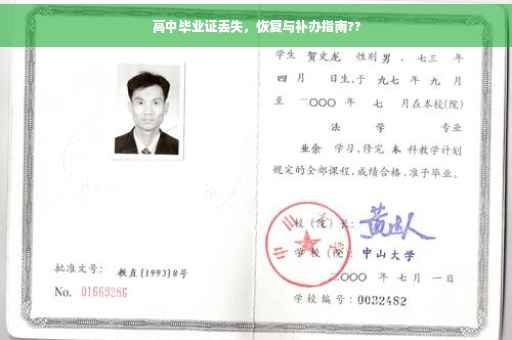 高中毕业证丢失，恢复与补办指南??
学生 贺文龙 性别 男 、七三 年
四 月 日生,于 九七 年 九 月
至 二〇〇〇 年 七 月在本校(院)
法 学 专业
业余 学习,修完 本 科教学计划
规定的全部课程,成绩合格,准予毕业。
校(院)长:
学校(院): 中山大学
二〇〇〇 年 七 月 一 日
学校编号: 0032482
批准文号: 教直[1993]8号
No. 01663286